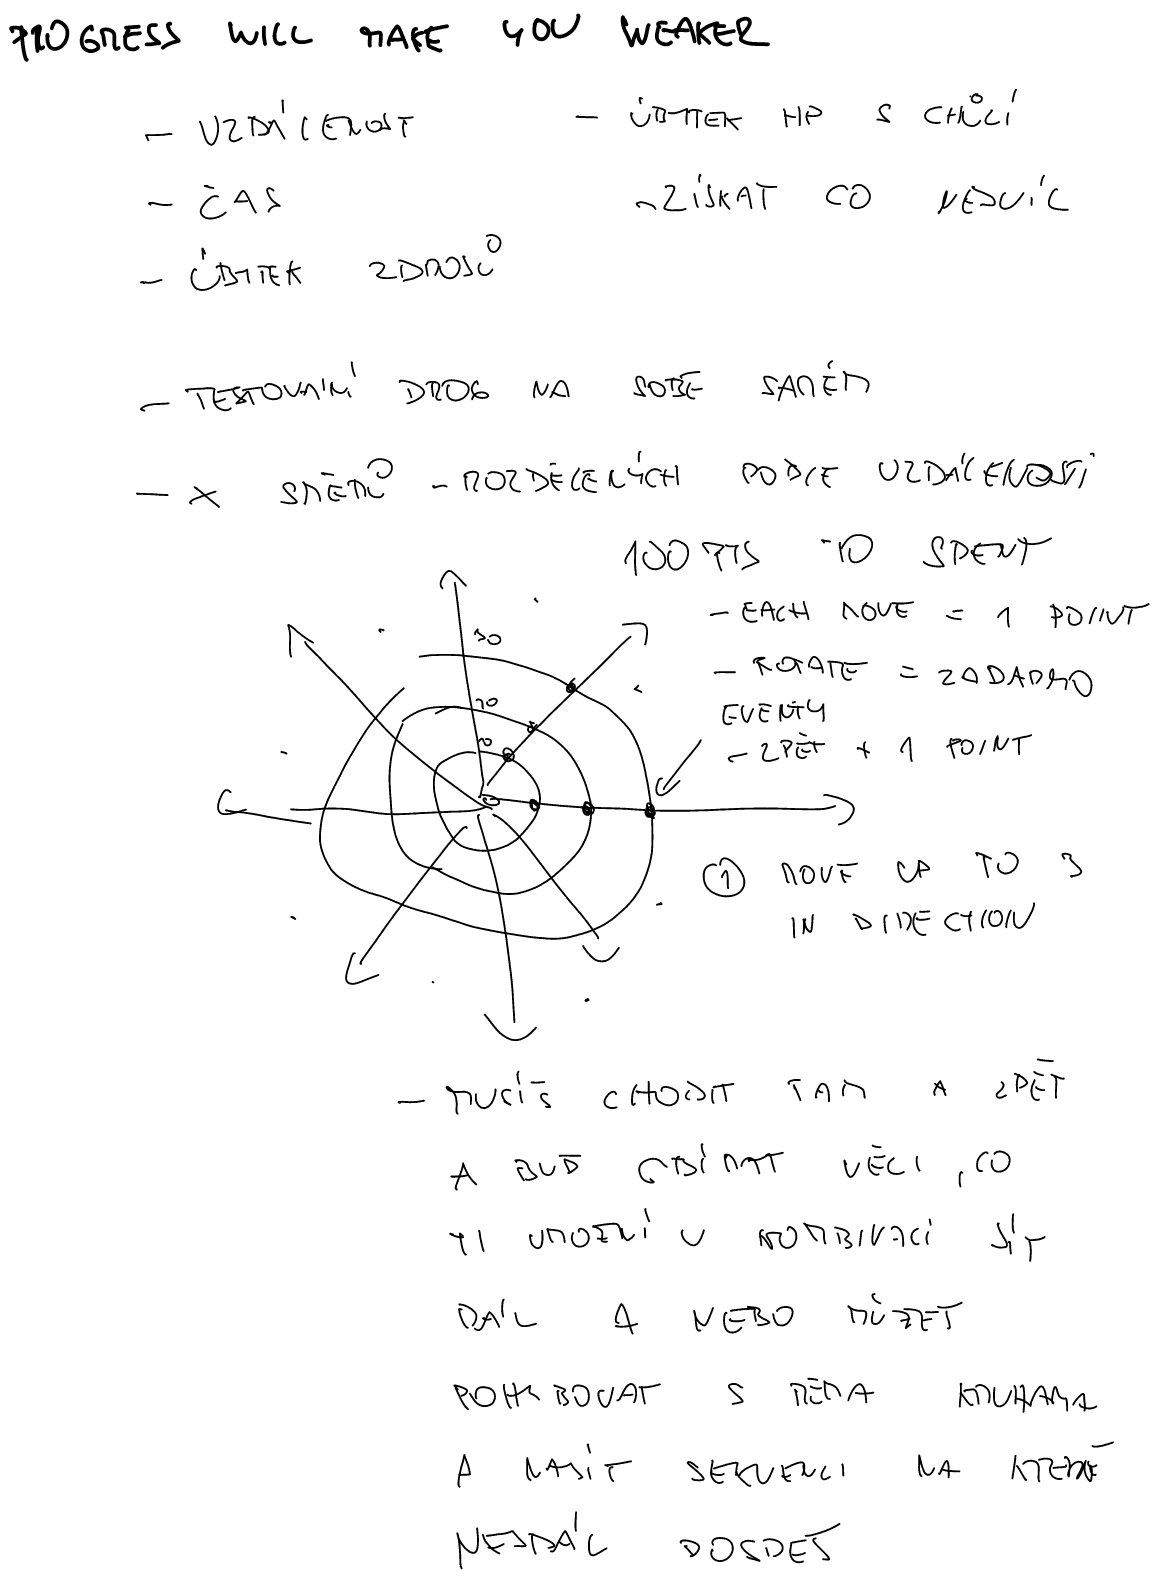 PROGRESS WILL MAKE YOU WEAKER
- VZDÁLENOST
- ČAS
- ÚBYTEK ZDROJŮ
- ÚBYTEK HP S CHŮZÍ
- ZÍSKAT CO NEJVÍC
- TESTOVÁNÍ DROG NA SOBĚ SAMÉM
- X SMĚRŮ - ROZDĚLENÝCH PODLE VZDÁLENOSTI
100 PTS TO SPENT
- EACH MOVE = 1 POINT
- ROTATE = ZADARMO
EVENTY
- ZPĚT + 1 POINT
30
① MOVE UP TO 3
IN DIRECTION
- MUSÍŠ CHODIT TAM A ZPĚT
A BUĎ SBÍRAT VĚCI, CO
TI UMOŽNÍ V KOMBINACI JÍT
DÁL A NEBO MŮŽEŠ
POHYBOVAT S TĚMA KRUHAMA
A NAJÍT SEKVENCI NA KTERÉ
NEJDÁL DOJDEŠ